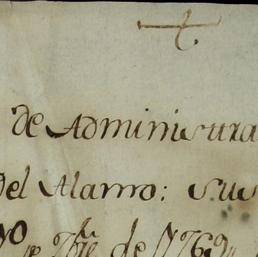 de Administra
del Alamo: sus
yo, e 7bre de 1769,,